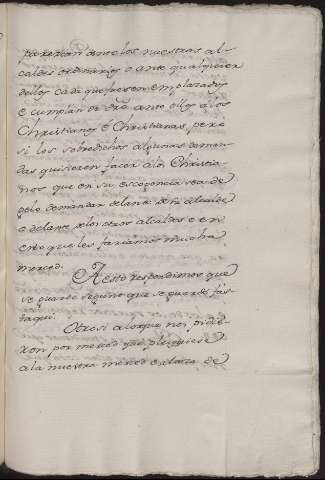 parezcan ante los nuestros al-
caldes ordinarios o ante qualquier
dellos cada que fueren emplazados
e cumplan de dro. ante ellos a los
Christianos e Christianas, pero
si los sobredichos algunas deman-
das quisieren facer a los Christia-
nos que en su escogencia sea de
gelo demandar delante de su alcalde
o delante de los otros alcaldes e en
esto que les fariamos mucha
merced.
A esto respondemos que
se guarde segunt que se guardó fas-
ta aqui.
Otrosi a lo que nos pidie-
ron por merced que pluguiese
a la nuestra merced e alteza de